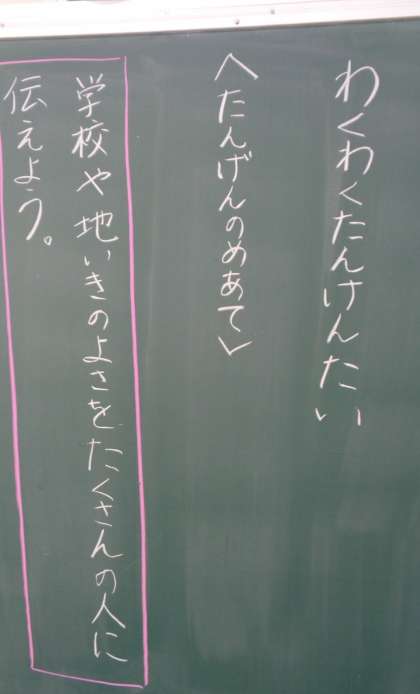 わくわくたんけんたい
〈たんげんのめあて〉
学校や地いきのよさをたくさんの人に
伝えよう。